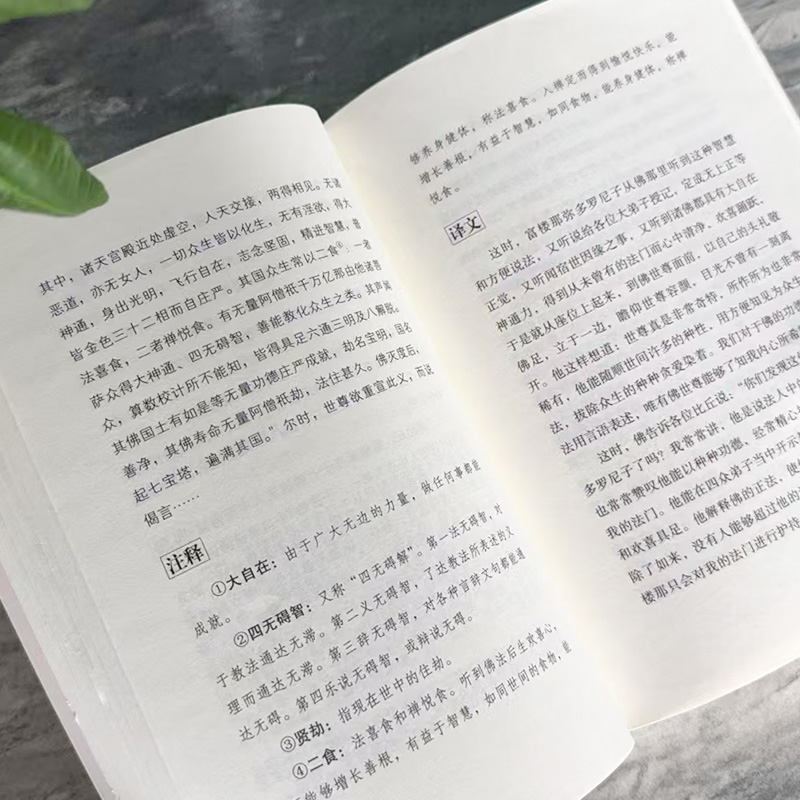 其中，诸天宫殿近处虚空，人天交接，两得相见。无诸
恶道，亦无女人，一切众生皆以化生，无有淫欲，得大
神通，身出光明，飞行自在，志念坚固，精进智慧，普
皆金色三十二相而自庄严。其国众生常以二食④，一者
法喜食，二者禅悦食。有无量阿僧祇千万亿那由他诸菩
萨众得大神通、四无碍智，善能教化众生之类。其声闻
众，算数校计所不能知，皆得具足六通三明及八解脱。
其佛国土有如是等无量功德庄严成就，劫名宝明，国名
善净，其佛寿命无量阿僧祇劫，法住甚久。佛灭度后，
起七宝塔，遍满其国。”尔时，世尊欲重宣此义，而说
偈言……
注释
①大自在：由于广大无边的力量，做任何事都能
成就。
②四无碍智：又称“四无碍解”。第一法无碍智，对
于教法通达无滞。第二义无碍智，了达教法所表述的义
理而通达无滞。第三辞无碍智，对各种言辞文句都能通
达无碍。第四乐说无碍智，或辩说无碍。
③贤劫：指现在世中的住劫。
④二食：法喜食和禅悦食。听到佛法后生欢喜心，
能够增长善根，有益于智慧，如同世间的食物，能
够养身健体，称法喜食。入禅定而得到愉悦快乐，能
增长善根，有益于智慧，如同食物，能养身健体，称禅
悦食。
译文
这时，富楼那弥多罗尼子从佛那里听到这种智慧
和方便说法，又听说给各位大弟子授记，定成无上正等
正觉，又听闻宿世因缘之事，又听到诸佛都具有大自在
神通力，得到从未曾有的法门而心中清净、欢喜踊跃，
于是就从座位上起来，到佛世尊面前，以自己的头礼敬
佛足，立于一边，瞻仰世尊容颜，目光不曾有一刻离
开。他这样想道：世尊真是非常奇特，所作所为也非常
稀有，他能随顺世间许多的种性，用方便知见为众生
法，拔除众生的种种贪爱染着。我们对于佛的功德
法用言语表述，唯有佛世尊能够了知我内心所希
这时，佛告诉各位比丘说：“你们发现这
多罗尼子了吗？我常常讲，他是说法人中
也常常赞叹他能以种种功德、经常精心
我的法门。他能在四众弟子当中开示
和欢喜具足。他解释佛的正法，使
除了如来，没有人能够超过他的
楼那只会对我的法门进行护持